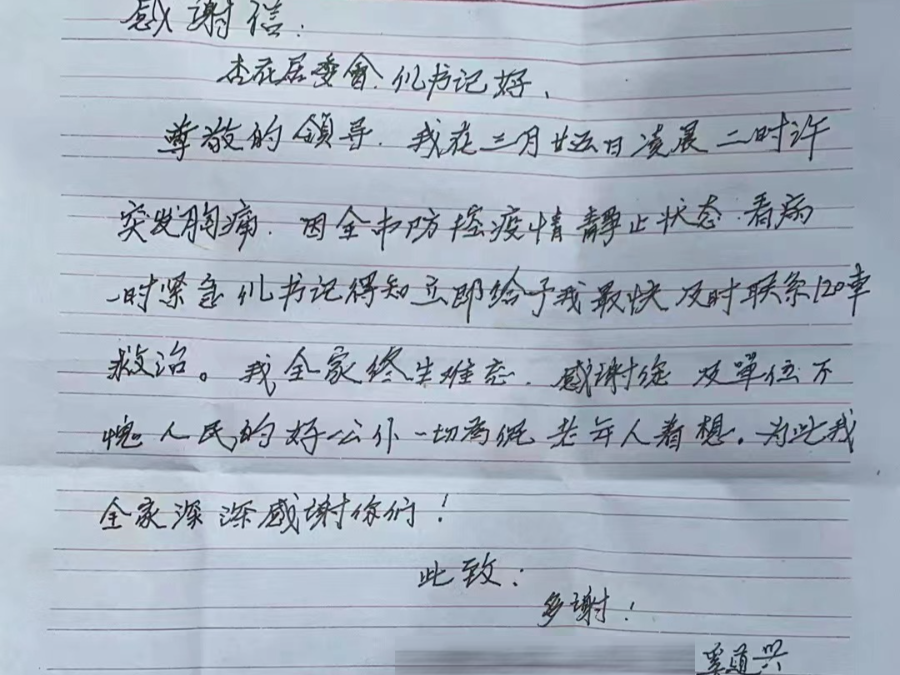 感谢信:
杏花居委会、仉书记好、
尊敬的領导、我在三月廿五日凌晨二时许
突发胸痛、因全市防控疫情靜止状态、看病
一时紧急仉书记得知立即给予我最快及时联系120車
救治。我全家终生难忘、感谢您及單位不
愧人民的好公仆一切為俺老年人着想。为此我
全家深深感谢你们!
此致:
多谢!
奚道兴